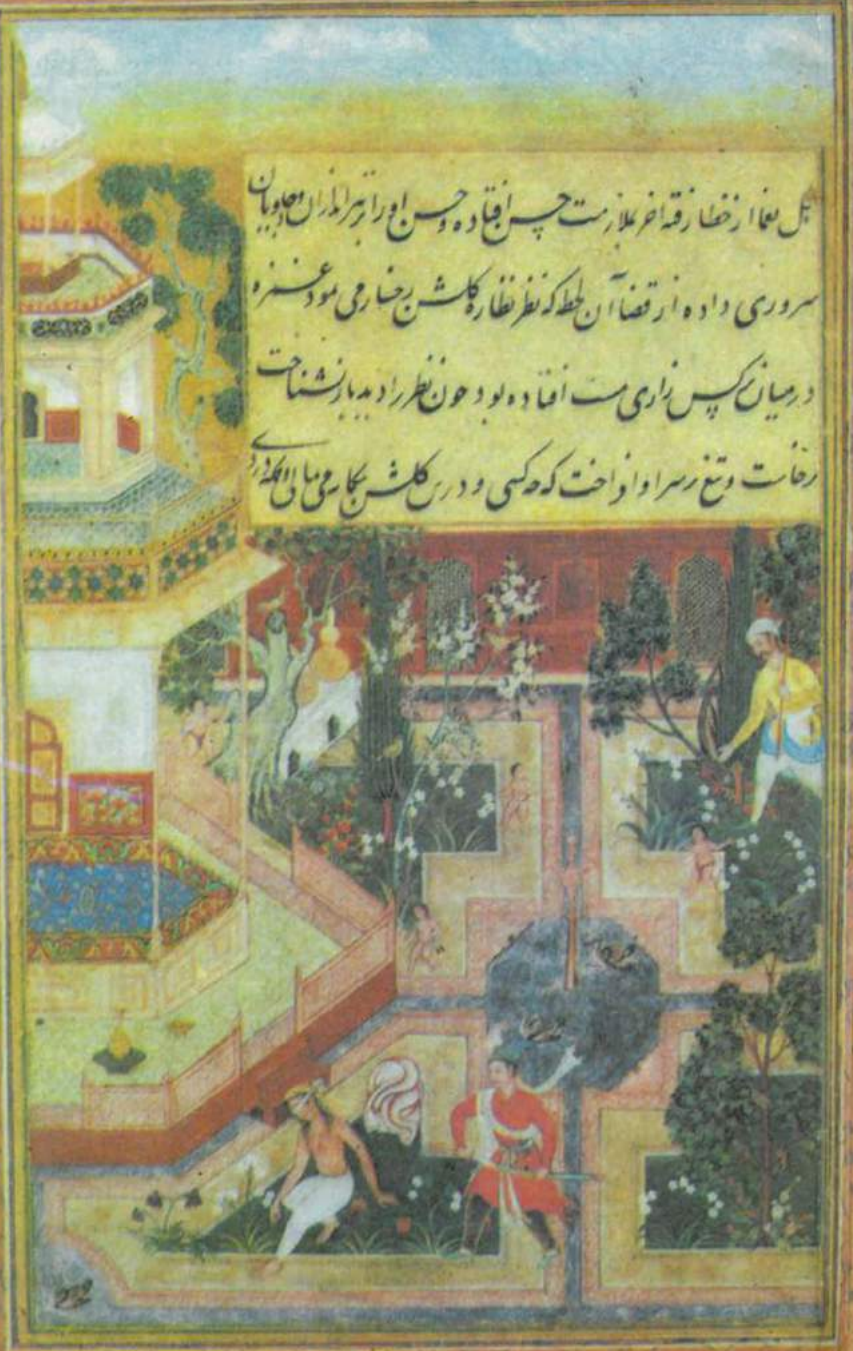 اهل یغما از خطا رفته اخر بملازمت حسن افتاده و حسن او را بر تیراندازان و جادویان
سروری داده از قضا آن لحظه که نظر نظاره گلشن رخسار می نمود غمزه
در میان نرگس زاری مست افتاده بود چون نظر را دید باز نشناخت
برخاست و تیغ بر سر او انداخت که چه کسی و در این گلشن بچکار می